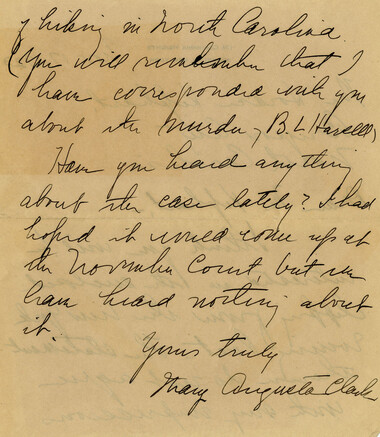 of hiking in North Carolina.
(You will remember that I
have corresponded with you
about the murder of B. L.
Have you heard anything
about the case lately? I had
hoped it would come up at
the November Court, but we
have heard nothing about
it.
Yours truly
Mary Augusta Clark